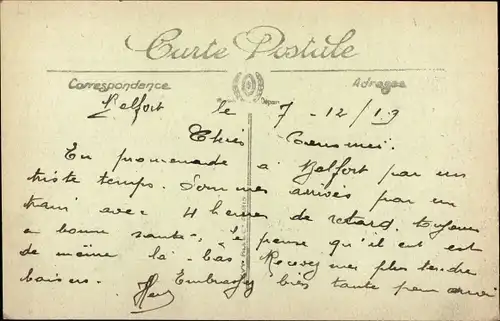 Carte Postale
Correspondance Adresse
Belfort le 7 - 12/19
Chers Cousines.
En promenade a Belfort par un
triste temps. Sommes arrives par un
train avec 4 heures de retard. Toujours
en bonne sante, je pense qu'il en est
de même là-bas Recevez mes plus tendre
baisers. Embrassez bien tante pour moi